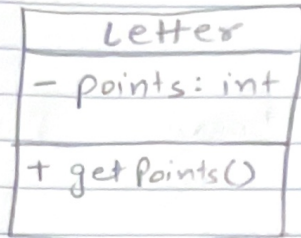 Letter
- points: int
+ getPoints()